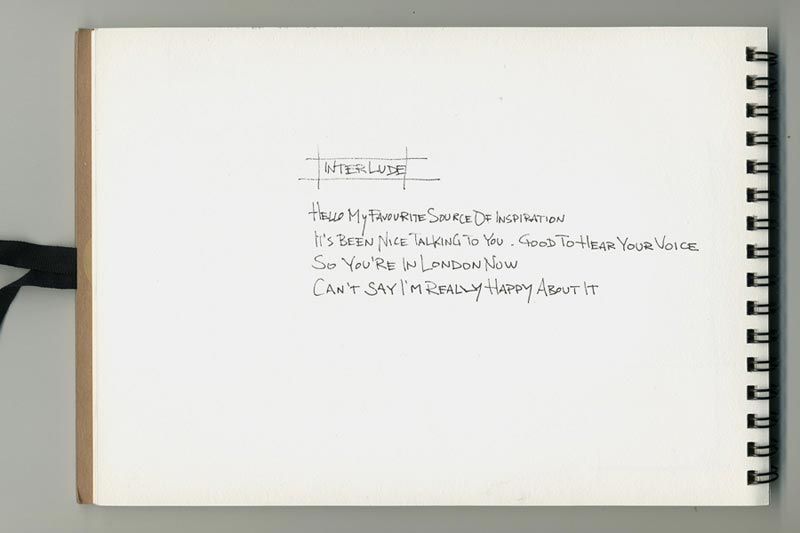 INTERLUDE
HELLO MY FAVOURITE SOURCE OF INSPIRATION
IT'S BEEN NICE TALKING TO YOU. GOOD TO HEAR YOUR VOICE
SO YOU'RE IN LONDON NOW
CAN'T SAY I'M REALLY HAPPY ABOUT IT